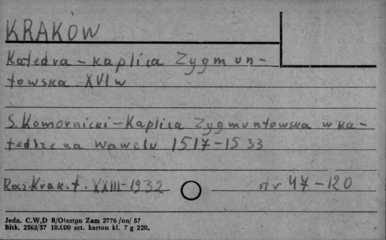 KRAKÓW
Katedra – kaplica Zygmun-
towska XVI w
S. Komornicki – Kaplica Zygmuntowska w ka-
tedrze na Wawelu 1517–1533
Rocz. Krak. t. XXIII – 1932 str 47 – 120
Jedn. C.W.D B/Olsztyn Zam 2776 /oa/ 57
Bisk. 2563/57 10.000 szt. karton kl. 7 g 220.